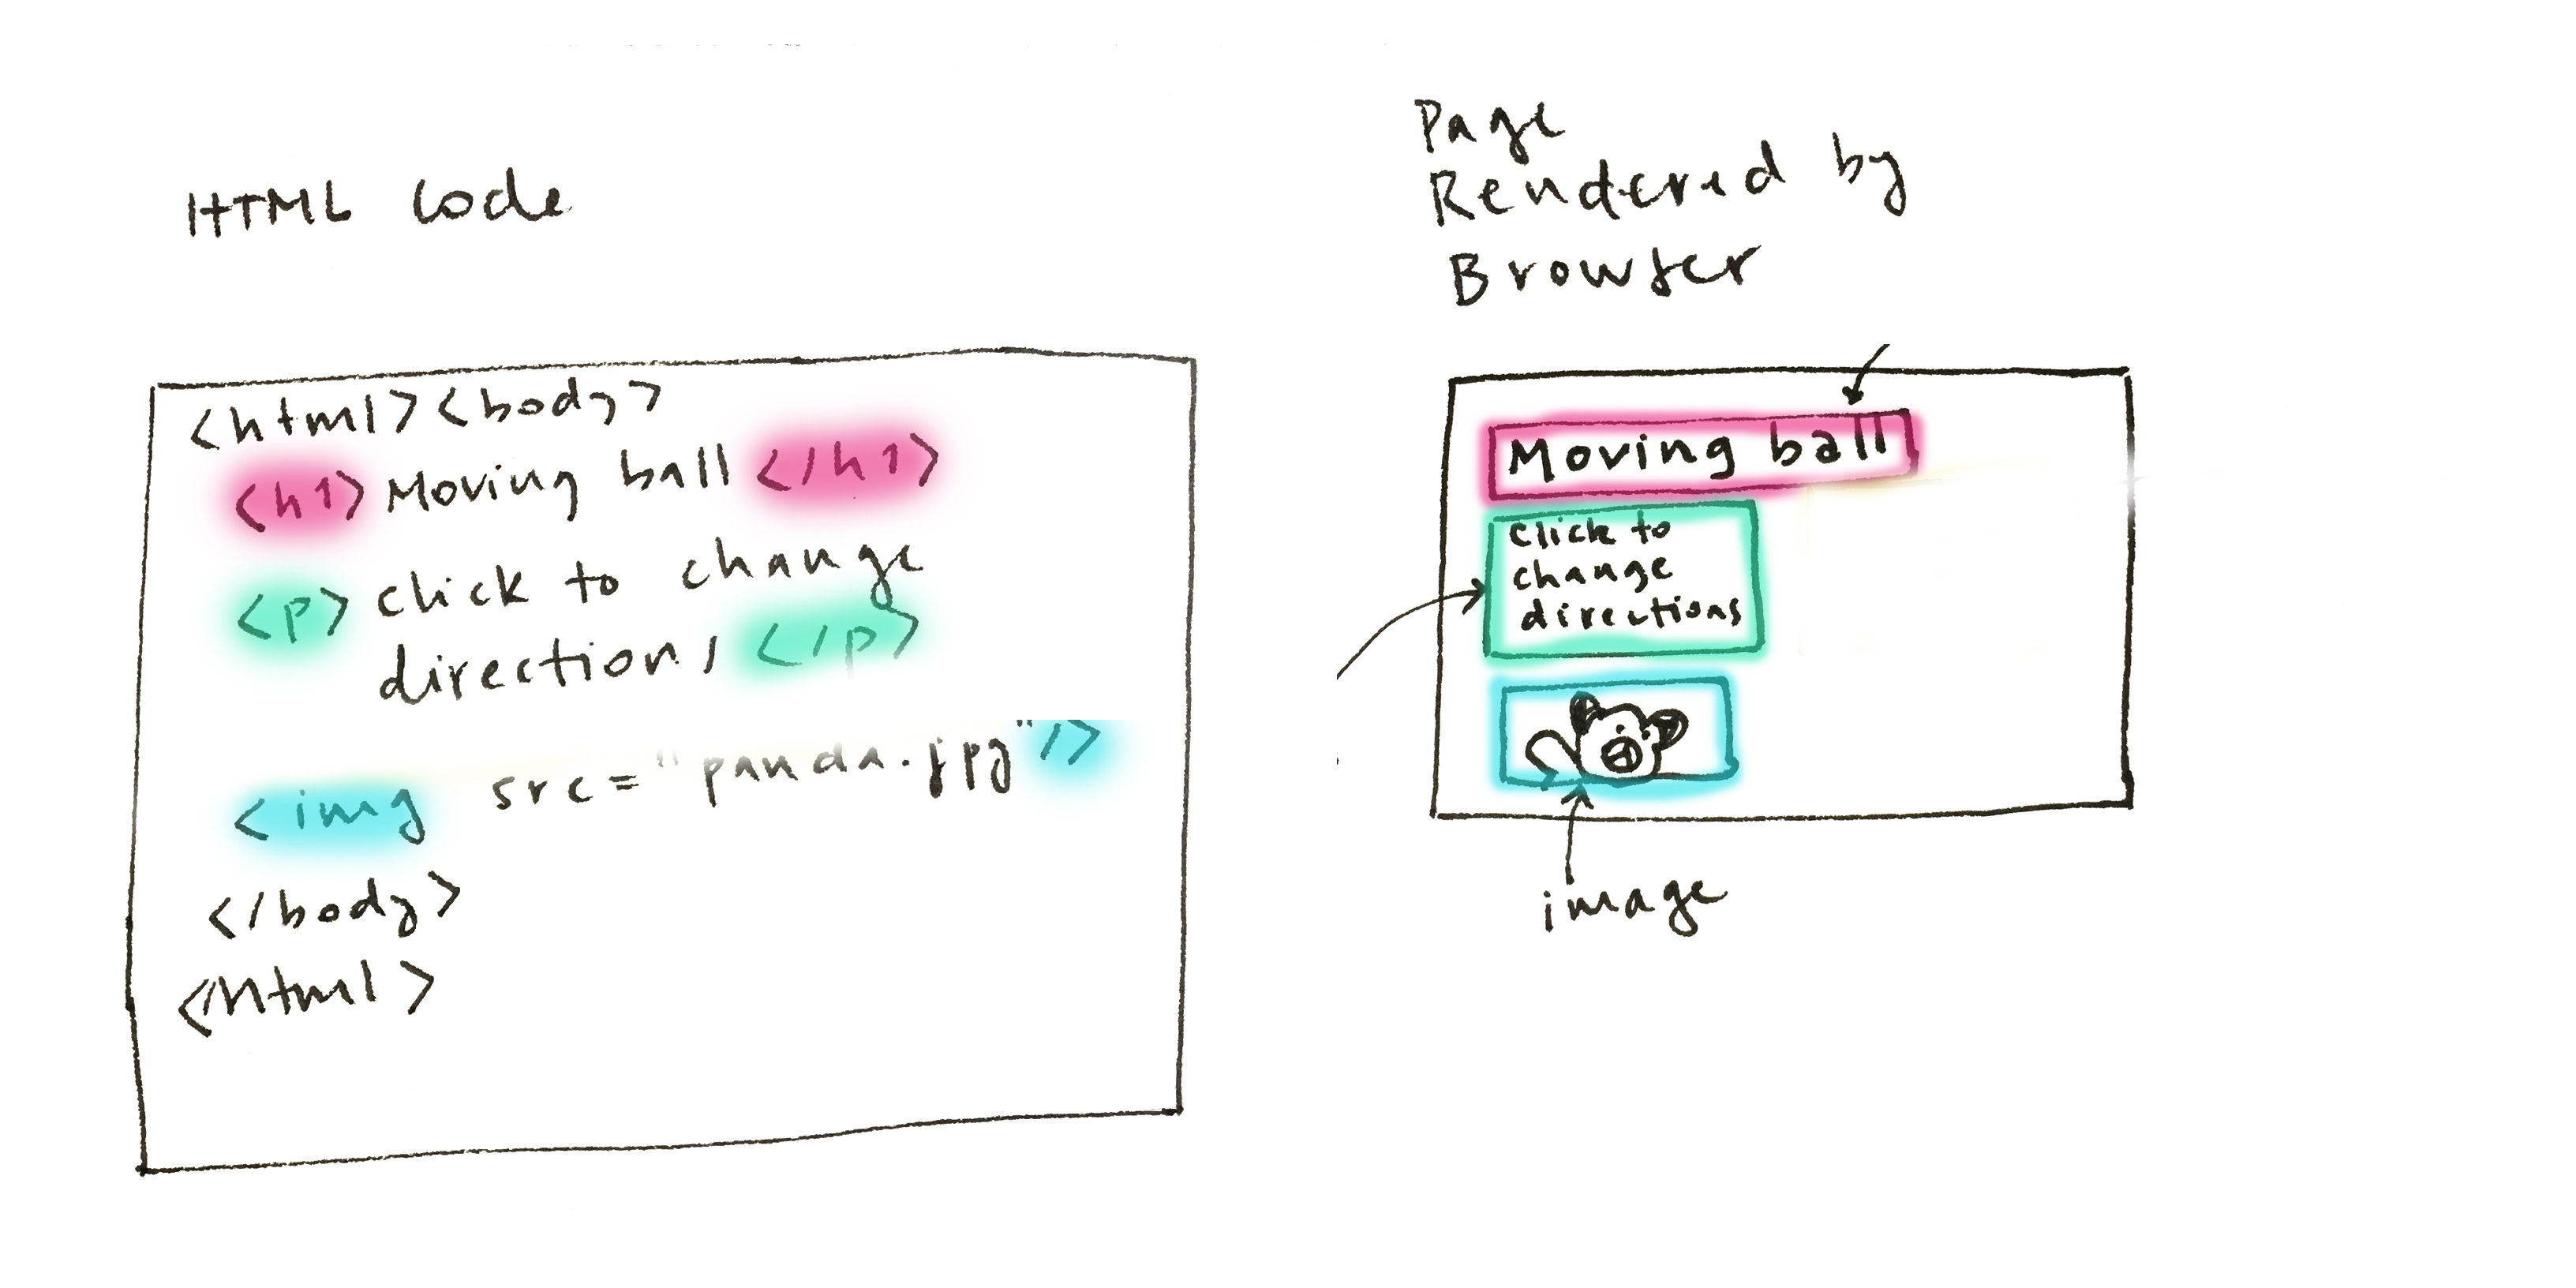 HTML code
<html><body>
<h1> Moving ball </h1>
<p> click to change
directions </p>
<img src="panda.jpg"/>
</body>
</html>
Page
Rendered by
Browser
Moving ball
click to
change
directions
image